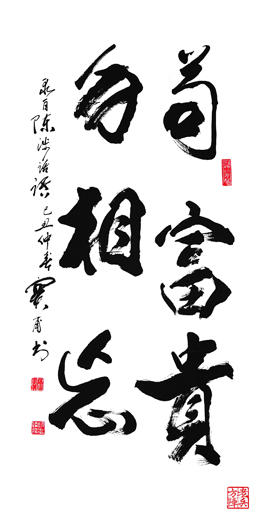 苟富貴
勿相忘
录自陈涉语 己丑仲春